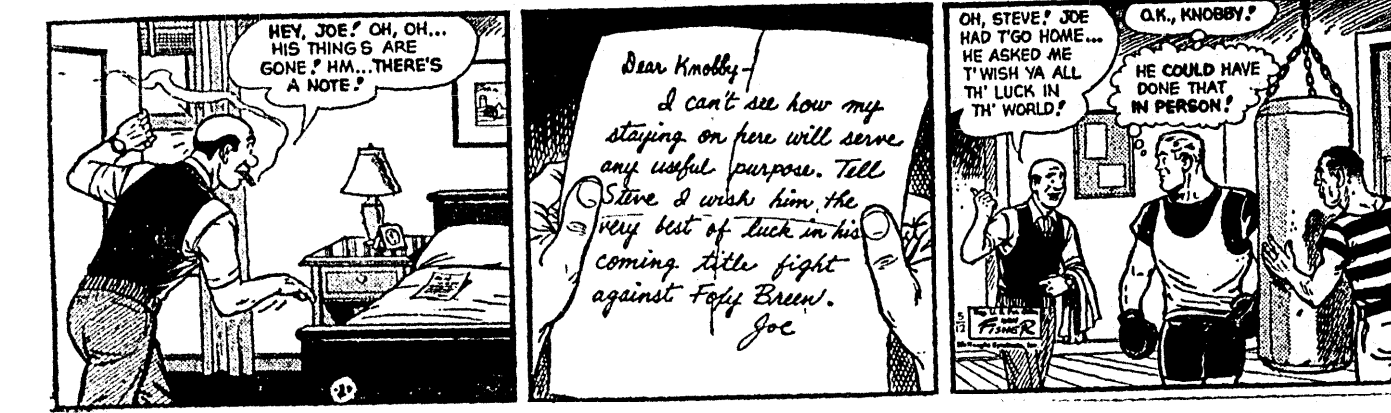 HEY, JOE! OH, OH...
HIS THINGS ARE
GONE! HM...THERE'S
A NOTE!
Dear Knobby-
I can't see how my
staying on here will serve
any useful purpose. Tell
Steve I wish him the
very best of luck in his
coming title fight
against Fofy Breen.
Joe
OH, STEVE! JOE
HAD T'GO HOME...
HE ASKED ME
T'WISH YA ALL
TH' LUCK IN
TH' WORLD!
O.K., KNOBBY!
HE COULD HAVE
DONE THAT
IN PERSON!
5
12
FISHER